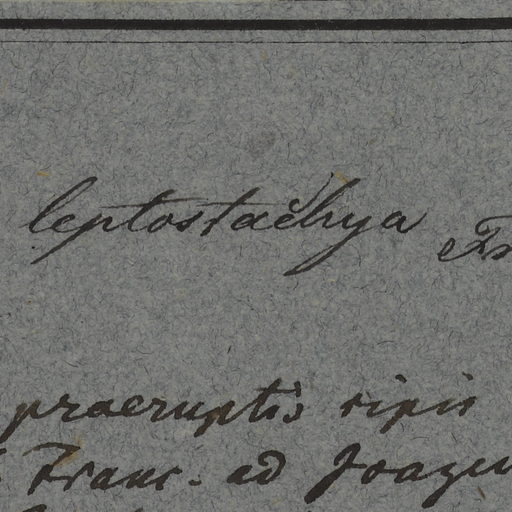 leptostachya
praeruptis ripis
Franc. ad